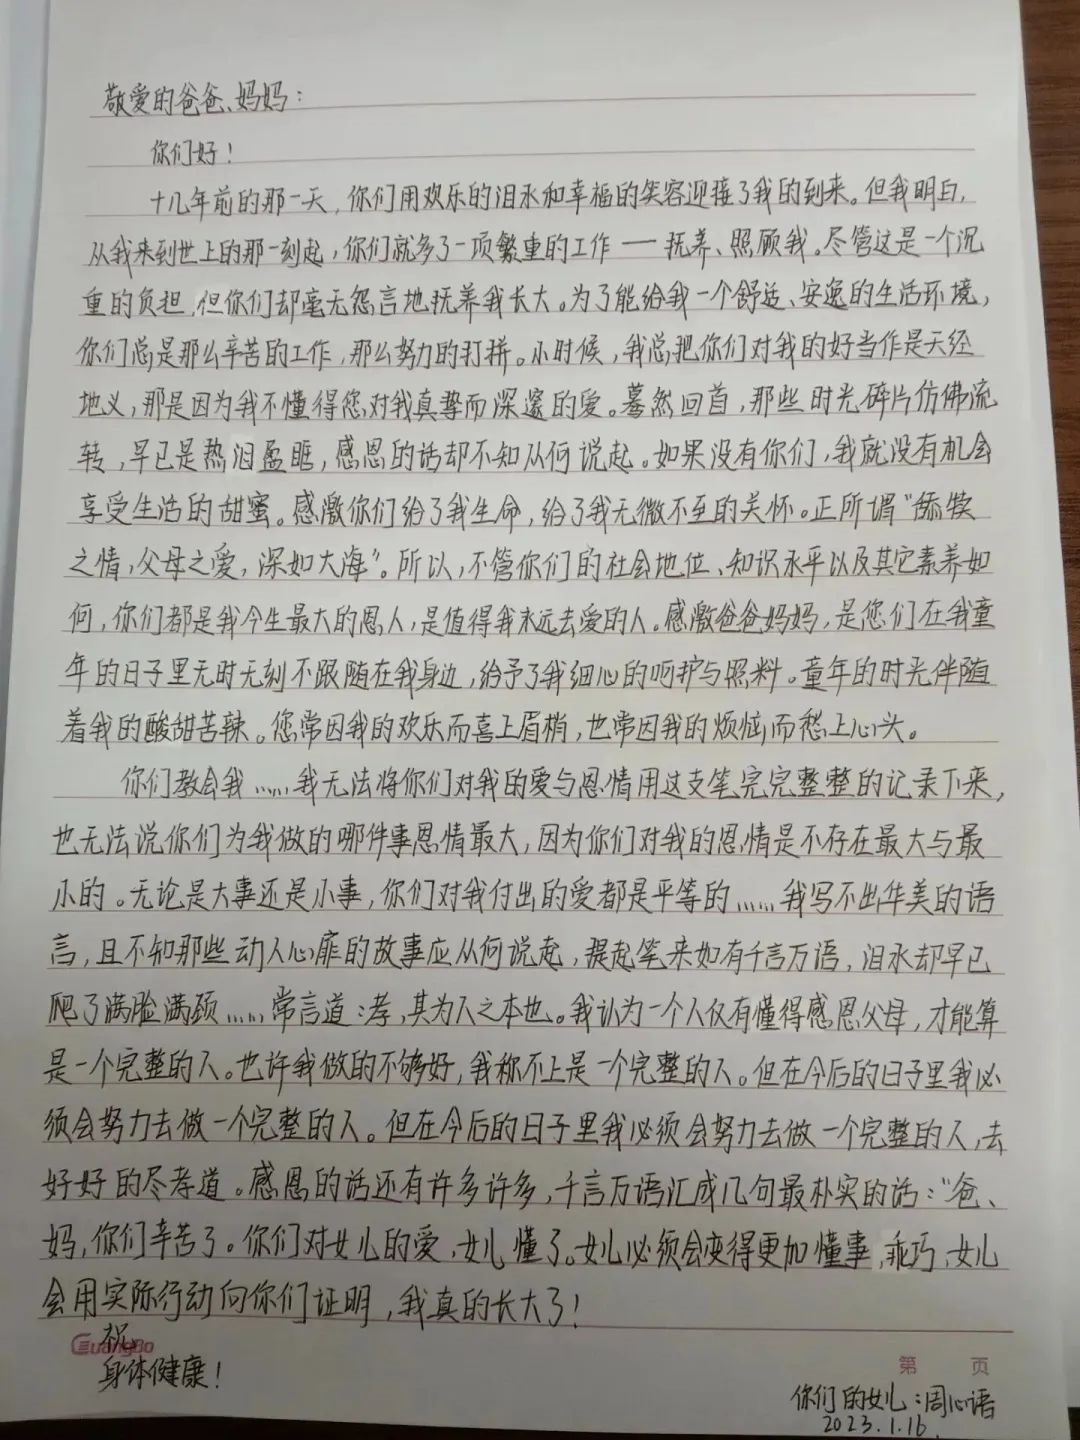 敬爱的爸爸、妈妈：
你们好！
十几年前的那一天，你们用欢乐的泪水和幸福的笑容迎接了我的到来。但我明白，
从我来到世上的那一刻起，你们就多了一项繁重的工作——抚养、照顾我。尽管这是一个沉
重的负担，但你们却毫无怨言地抚养我长大。为了能给我一个舒适、安逸的生活环境，
你们总是那么辛苦的工作，那么努力的打拼。小时候，我总把你们对我的好当作是天经
地义，那是因为我不懂得您对我真挚而深邃的爱。蓦然回首，那些时光碎片仿佛流
转，早已是热泪盈眶，感恩的话却不知从何说起。如果没有你们，我就没有机会
享受生活的甜蜜。感激你们给了我生命，给了我无微不至的关怀。正所谓“舔犊
之情，父母之爱，深如大海”。所以，不管你们的社会地位、知识水平以及其它素养如
何，你们都是我今生最大的恩人，是值得我永远去爱的人。感激爸爸妈妈，是您们在我童
年的日子里无时无刻不跟随在我身边，给予了我细心的呵护与照料。童年的时光伴随
着我的酸甜苦辣。您常因我的欢乐而喜上眉梢，也常因我的烦恼而愁上心头。
你们教会我……我无法将你们对我的爱与恩情用这支笔完完整整的记录下来，
也无法说你们为我做的哪件事恩情最大，因为你们对我的恩情是不存在最大与最
小的。无论是大事还是小事，你们对我付出的爱都是平等的……我写不出华美的语
言，且不知那些动人心扉的故事应从何说起，提起笔来如有千言万语，泪水却早已
爬了满脸满颈……常言道：孝，其为人之本也。我认为一个人仅有懂得感恩父母，才能算
是一个完整的人。也许我做的不够好，我称不上是一个完整的人。但在今后的日子里我必
须会努力去做一个完整的人。但在今后的日子里我必须会努力去做一个完整的人，去
好好的尽孝道。感恩的话还有许多许多，千言万语汇成几句最朴实的话：“爸、
妈，你们辛苦了。你们对女儿的爱，女儿懂了。女儿必须会变得更加懂事，乖巧，女儿
会用实际行动向你们证明，我真的长大了！
祝
GuangBo
身体健康！
第 页
你们的女儿：周心语
2023.1.16.